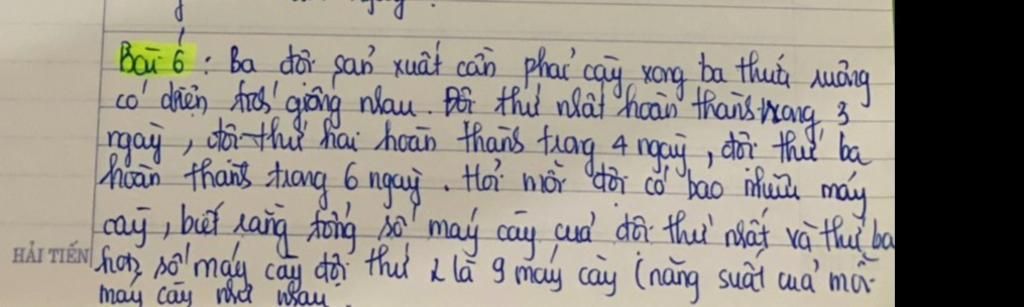 Bài 6 : Ba đội sản xuất cần phải cày xong ba thửa ruộng
có diện tích giống nhau. Đội thứ nhất hoàn thành trong 3
ngày, đội thứ hai hoàn thành trong 4 ngày, đội thứ ba
hoàn thành trong 6 ngày. Hỏi mỗi đội có bao nhiêu máy
cày, biết rằng tổng số máy cày của đội thứ nhất và thứ ba
HẢI TIẾN
hơn số máy cày đội thứ 2 là 9 máy cày (năng suất của mỗi
máy cày như nhau